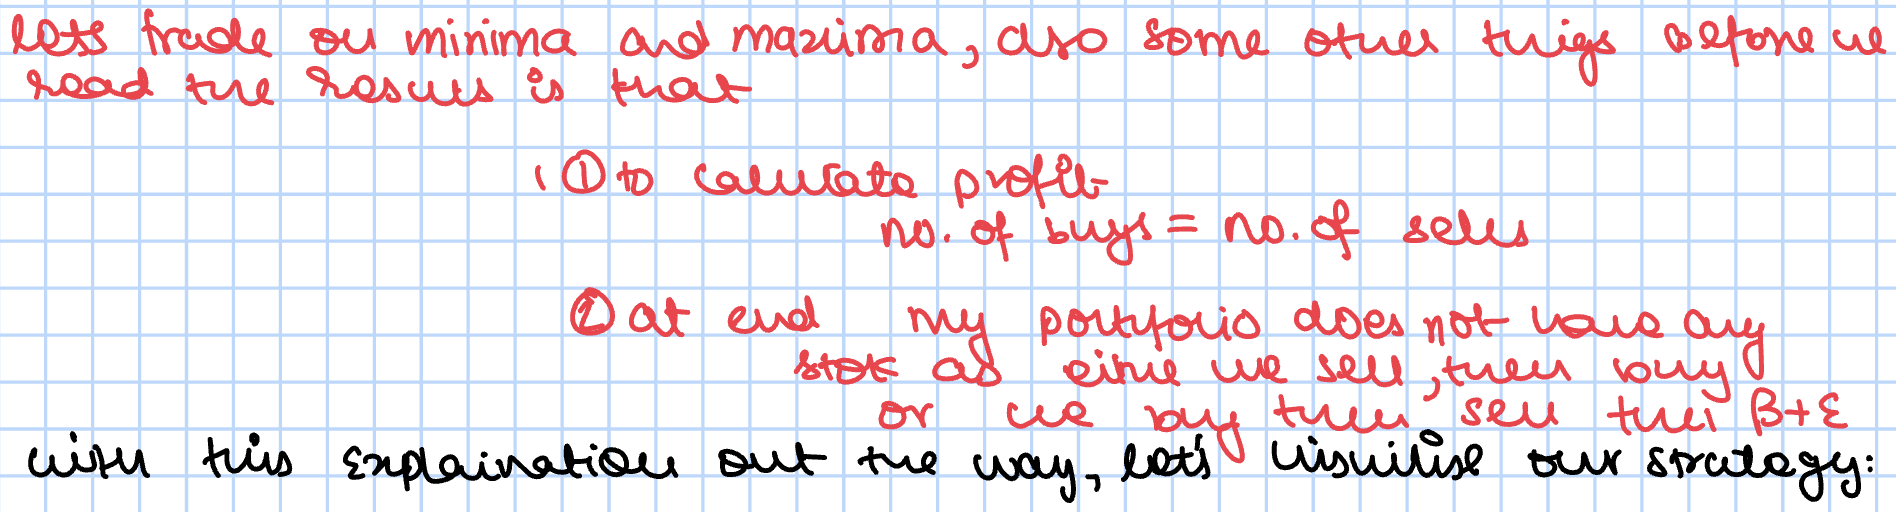 lets trade on minima and maxima, also some other things before we
read the results is that
① to calculate profit
no. of buys = no. of sells
② at end my portfolio does not have any
stok as eithe we sell, then buy
or we buy then sell the β+ε
with this explaination out the way, let's visuilise our strategy: